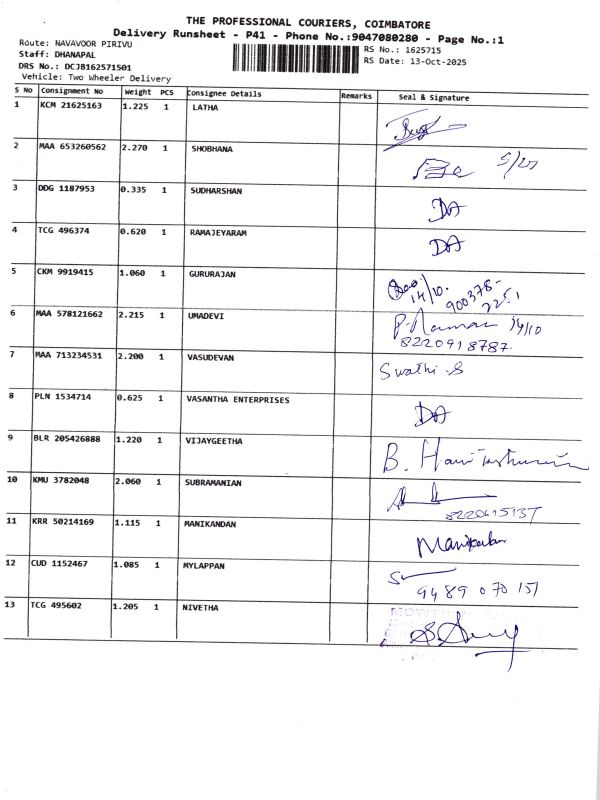 THE PROFESSIONAL COURIERS, COIMBATORE
Delivery Runsheet - P41 - Phone No.:9047080280 - Page No.:1
Route: NAVAVOOR PIRIVU
RS No.: 1625715
Staff: DHANAPAL
RS Date: 13-Oct-2025
DRS No.: DCJB162571501
Vehicle: Two Wheeler Delivery
S No Consignment No Weight PCS Consignee Details Remarks Seal & Signature
1 KCM 21625163 1.225 1 LATHA
2 MAA 653260562 2.270 1 SHOBHANA
3 DDG 1187953 0.335 1 SUDHARSHAN DA
4 TCG 496374 0.620 1 RAMAJEYARAM DA
5 CKM 9919415 1.060 1 GURURAJAN 14/10.
900378-
6 MAA 578121662 2.215 1 UMADEVI 14/10
8220918787.
7 MAA 713234531 2.200 1 VASUDEVAN Swathi .S
8 PLN 1534714 0.625 1 VASANTHA ENTERPRISES DA
9 BLR 205426888 1.220 1 VIJAYGEETHA B.
10 KMU 3782048 2.060 1 SUBRAMANIAN
11 KRR 50214169 1.115 1 MANIKANDAN
12 CUD 1152467 1.085 1 MYLAPPAN
9489 070 151
13 TCG 495602 1.205 1 NIVETHA